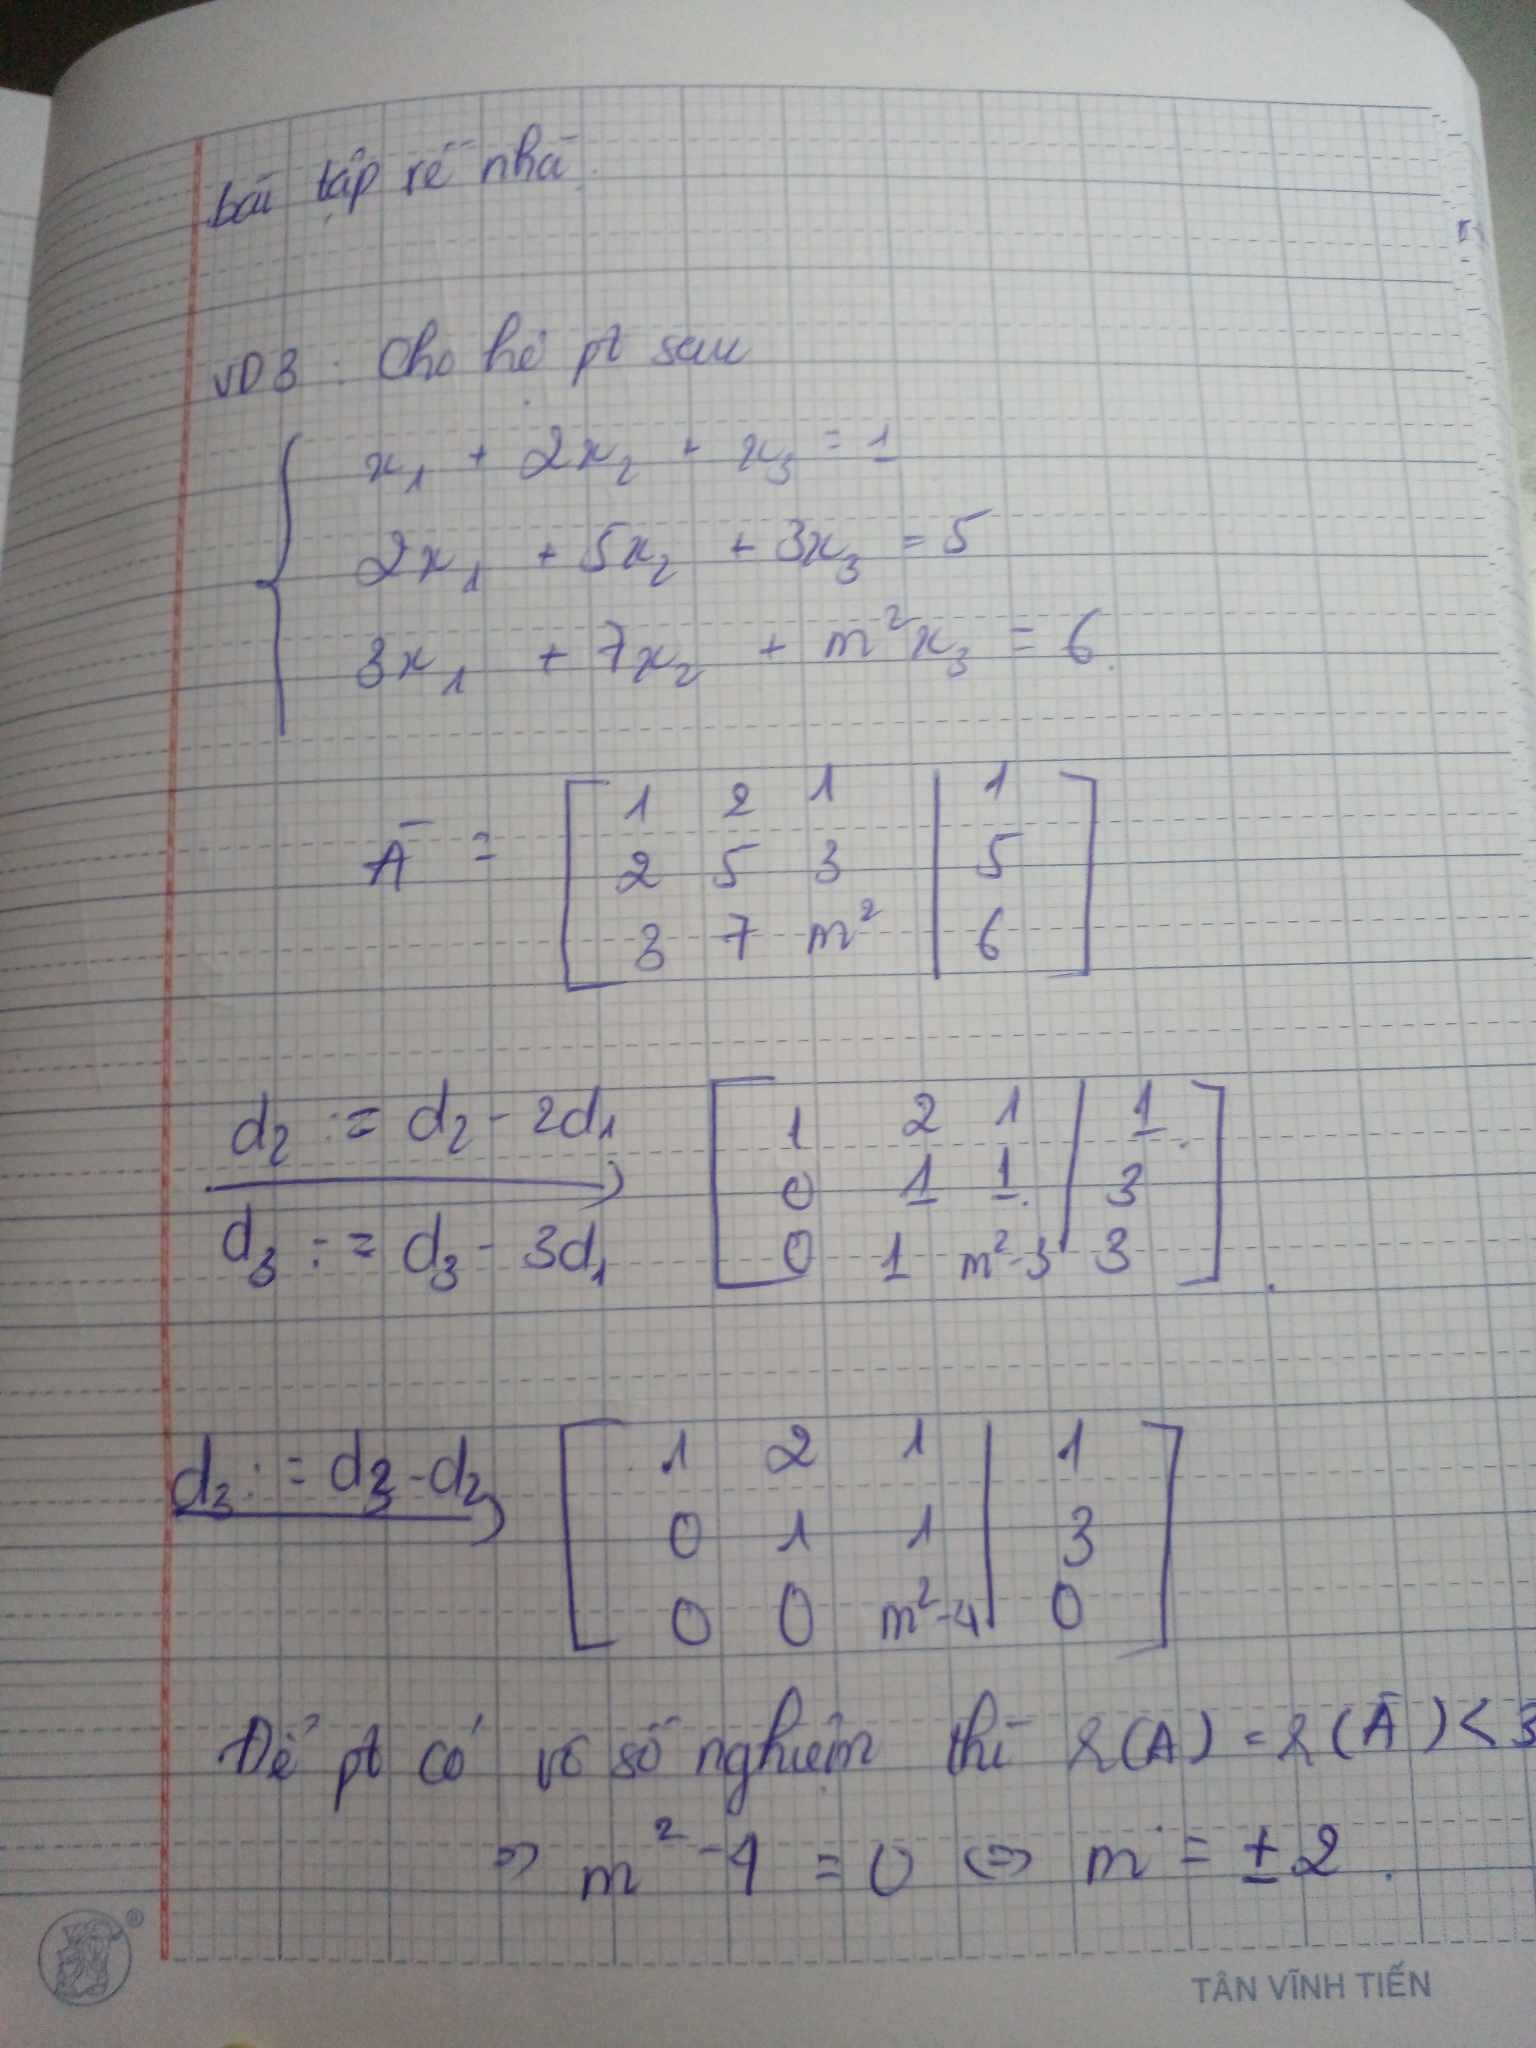 bài tập về nhà.
VD3 : Cho hệ pt sau
x₁ + 2x₂ + x₃ = 1
2x₁ + 5x₂ + 3x₃ = 5
3x₁ + 7x₂ + m²x₃ = 6.
1 2 1 | 1
Ā = 2 5 3 | 5
3 7 m² | 6
d₂ := d₂ - 2d₁
d₃ := d₃ - 3d₁
1 2 1 | 1
0 1 1 | 3
0 1 m²-3 | 3
d₃ := d₃ - d₂
1 2 1 | 1
0 1 1 | 3
0 0 m²-4 | 0
Để pt có vô số nghiệm thì r(A) = r(Ā) < 3
⇒ m² - 4 = 0 ⇔ m = ± 2.
®
TÂN VĨNH TIẾN